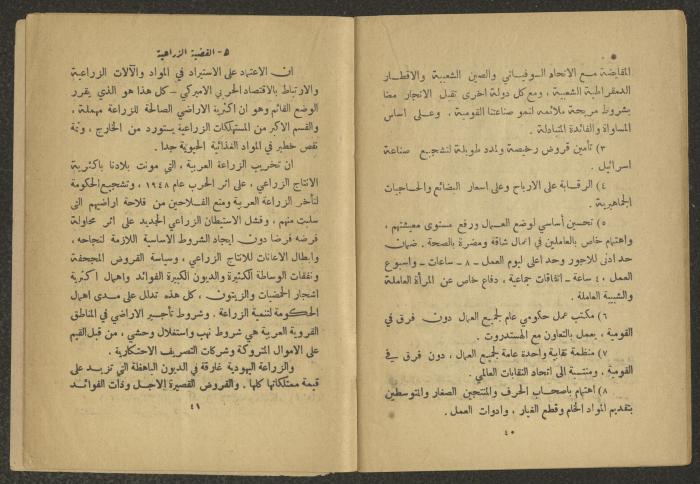 المقايضة مع الاتحاد السوفياتي والصين الشعبية والاقطار
الدمقراطية الشعبية ، ومع كل دولة اخرى تقبل الاتجار معنا
بشروط مريحة ملائمة لنمو صناعتنا القومية . وعلى اساس
المساواة والفائدة المتبادلة .
٣) تأمين قروض رخيصة ولمدد طويلة لتشجيع صناعة
اسرائيل .
٤) الرقابة على الارباح وعلى اسعار البضائع والحاجيات
الجماهيرية .
٥) تحسين أساسي لوضع العمال ورفع مستوى معيشتهم ،
واهتمام خاص بالعاملين في اعمال شاقة ومضرة بالصحة . ضمان
حد ادنى للاجور وحد اعلى ليوم العمل - ٨ - ساعات - واسبوع
العمل ٤٠ ساعة - اتفاقات جماعية ، دفاع خاص عن المرأة العاملة
والشبيبة العاملة .
٦) مكتب عمل حكومي عام لجميع العمال دون فرق في
القومية ، يعمل بالتعاون مع الهستدروت .
٧) منظمة نقابية واحدة عامة لجميع العمال ، دون فرق في
القومية . ومنتسبة الى اتحاد النقابات العالمي .
٨) اهتمام باصحاب الحرف والمنتجين الصغار والمتوسطين
بتقديم المواد الخام وقطع الغيار ، وادوات العمل .
٤٠
٥- القضية الزراعية
ان الاعتماد على الاستيراد في المواد والآلات الزراعية
والارتباط بالاقتصاد الحربي الاميركي - كل هذا هو الذي يقرر
الوضع القائم وهو ان اكثرية الاراضي الصالحة للزراعة مهملة ،
والقسم الاكبر من المستهلكات الزراعية يستورد من الخارج ، وثمة
نقص خطير في المواد الغذائية الحيوية جدا .
ان تخريب الزراعة العربية ، التي مونت بلادنا باكثرية
الانتاج الزراعي ، على اثر الحرب عام ١٩٤٨ ، وتشجيع الحكومة
لتأخر الزراعة العربية ومنع الفلاحين من فلاحة اراضيهم التي
سلبت منهم ، وفشل الاستيطان الزراعي الجديد على اثر محاولة
فرضه فرضا دون ايجاد الشروط الاساسية اللازمة لنجاحه ،
وابطال الاعانات للانتاج الزراعي ، وسياسة القروض المجحفة
ونفقات الوساطة الكثيرة والديون الكبيرة الفوائد واهمال اكثرية
اشجار الحمضيات والزيتون ، كل هذه تدلل على مدى اهمال
الحكومة لتنمية الزراعة . وشروط تأجير الاراضي في المناطق
القروية العربية هي شروط نهب واستغلال وحشي ، من قبل القيم
على الاموال المتروكة وشركات التصريف الاحتكارية .
والزراعة اليهودية غارقة في الديون الباهظة التي تزيد على
قيمة ممتلكاتها كلها . والقروض القصيرة الاجل وذات الفوائد
٤١